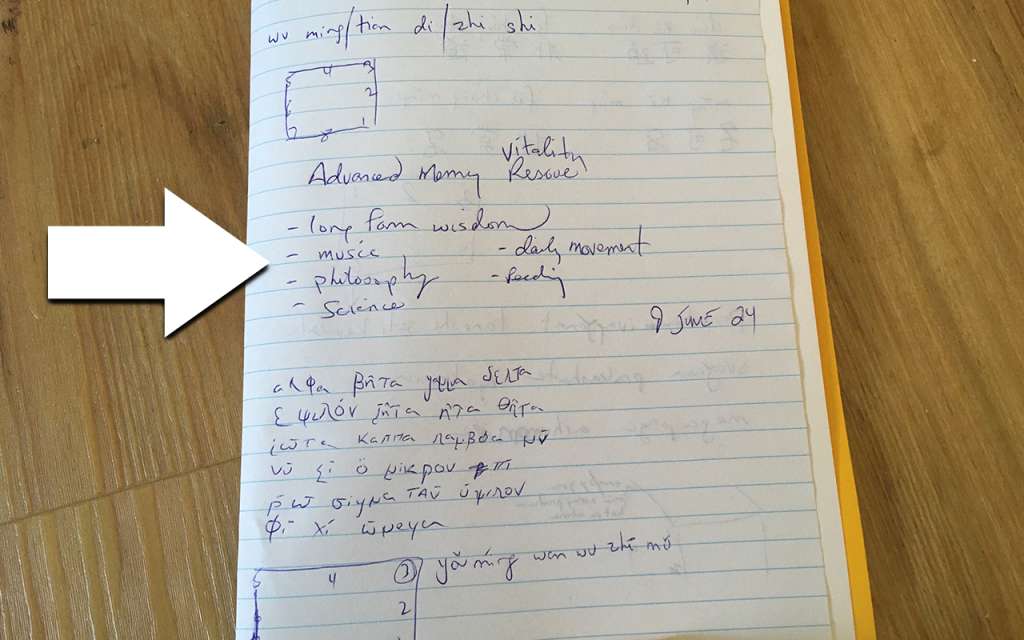 wu ming/tian di/zhi shi
5 4 3
2
6
7 8 1
Vitality
Advanced Memory Rescue
- long form wisdom
- music - daily movement
- philosophy -
- Science
9 JUNE 24
αλφα βῆτα γαμμα δελτα
ἐ ψιλόν ζῆτα ἦτα θῆτα
ἰῶτα καππα λαμβδα μῦ
νῦ ξῖ ὄ μικρον πῖ
ῥῶ σιγμα ταῦ ὔψιλον
φῖ χῖ ὦμεγα
yǒu míng wan wu zhī mǔ
5 4 3
2